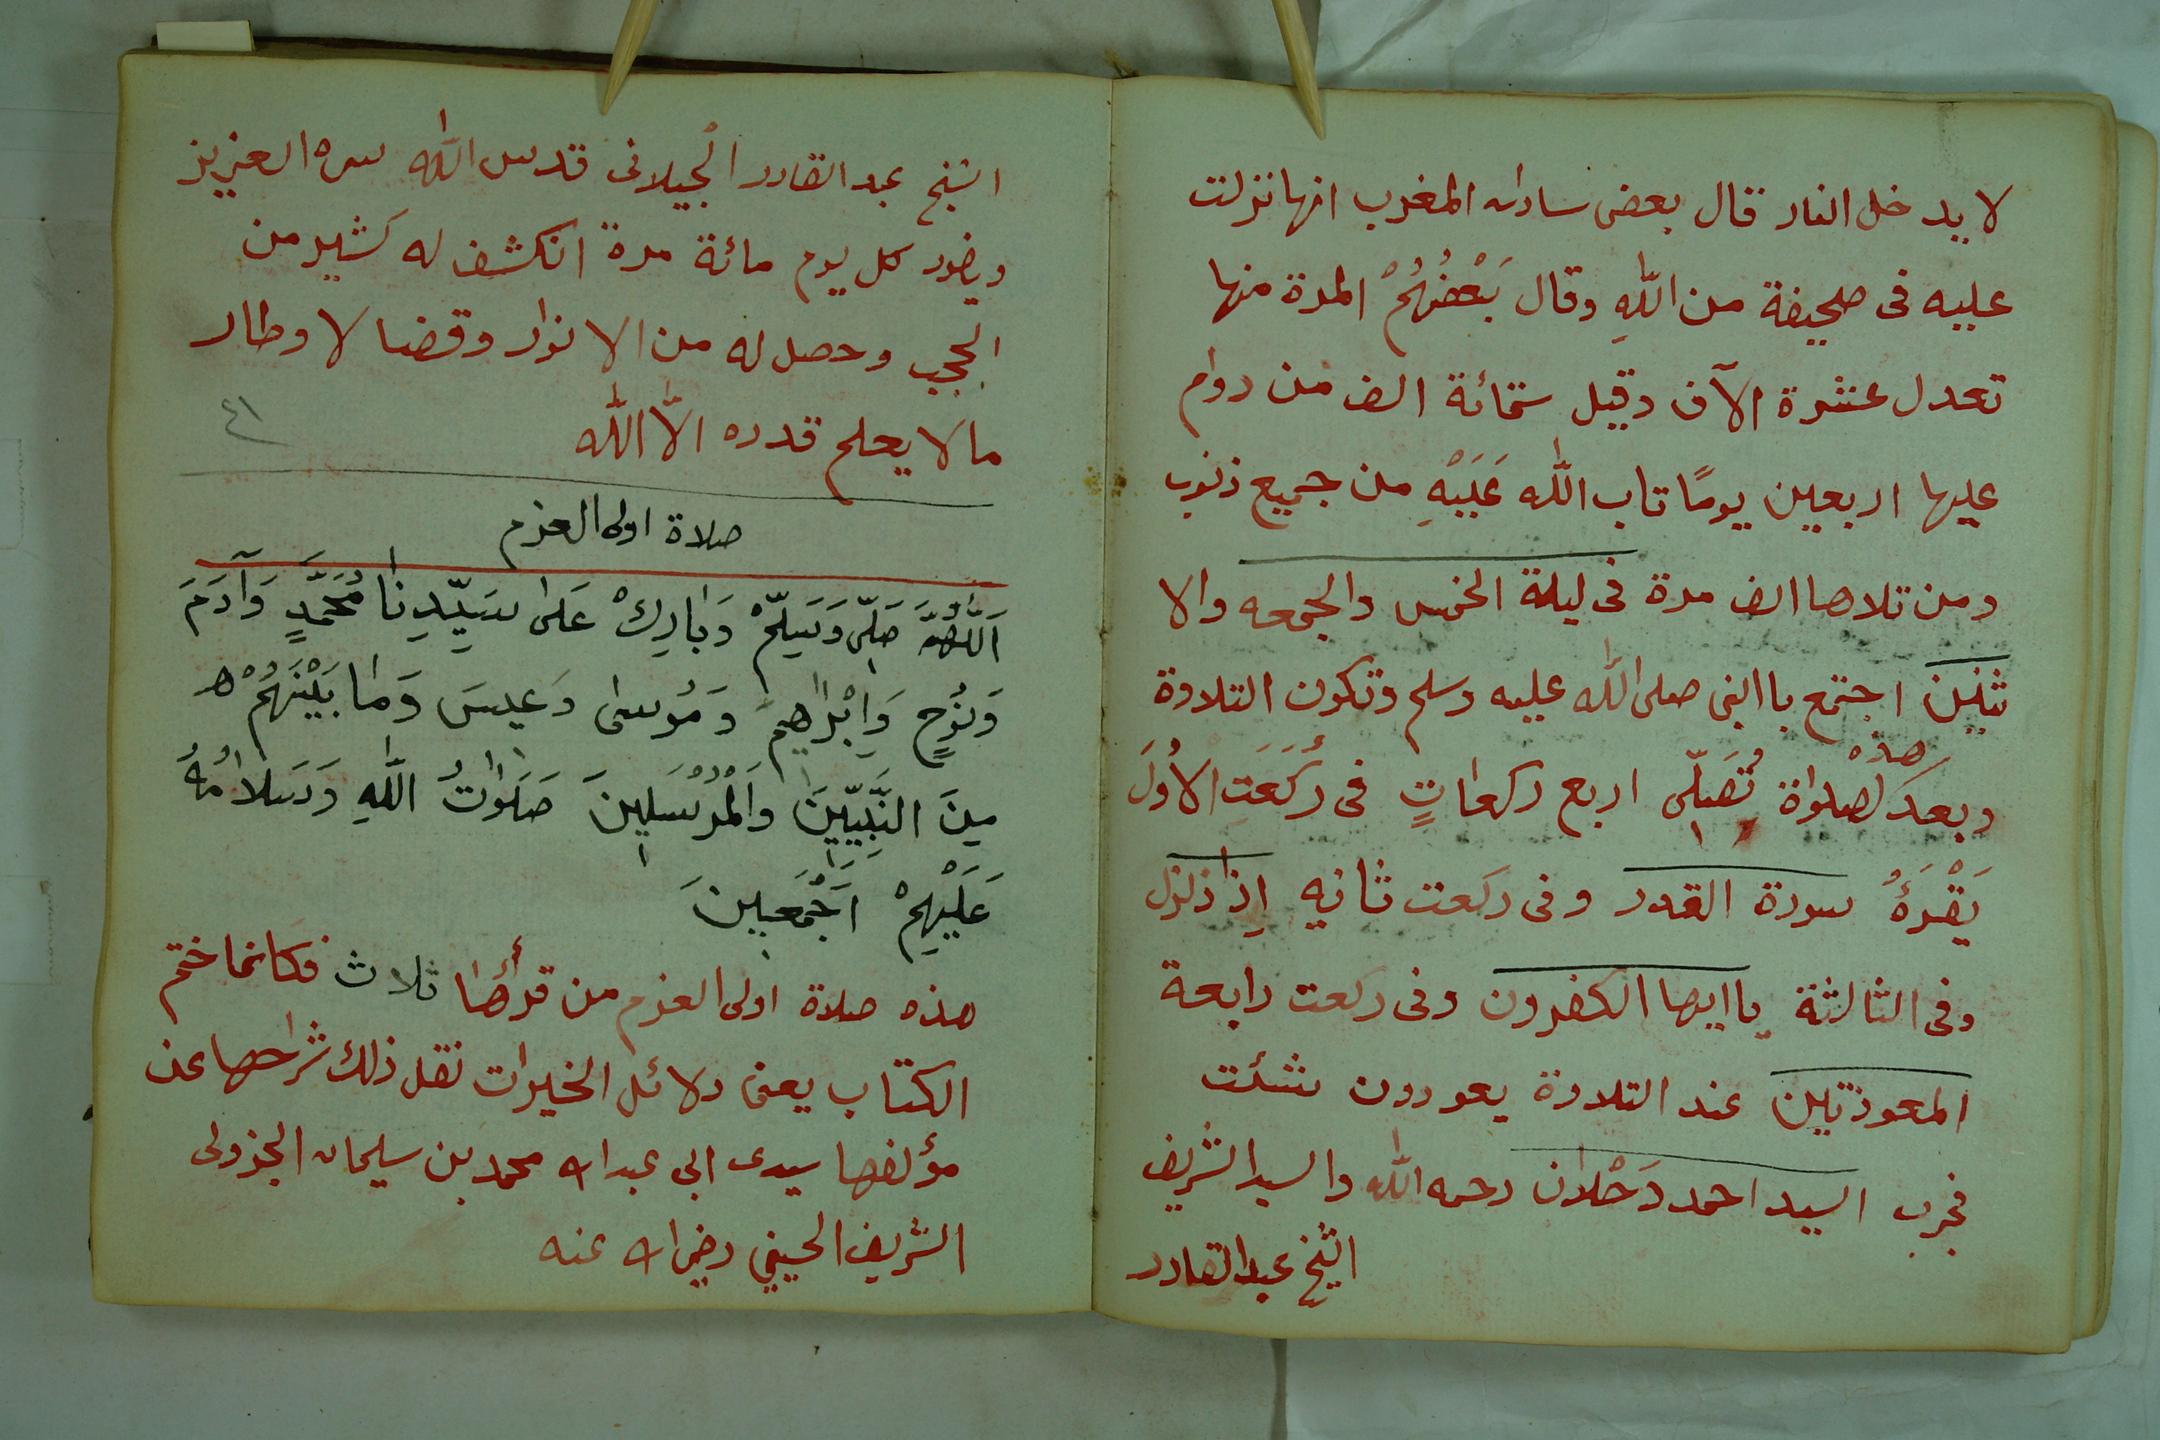 لا يدخل النار قال بعض سادات المغرب انها نزلت
عليه فى صحيفة من اللهِ وقال بَعْضُهُمْ المرة منها
تعدل عشرة الآف وقيل ستمائة الف من دوام
عليها اربعين يومًا تاب الله عَلَيْهِ من جميع ذنوب
ومن تلاها الف مرة فى ليلة الخمس والجمعه والا
ثنين اجتمع با النبى صلى الله عليه وسلم وتكون التلاوة
وبعد هذه لصلواة تُصَلّى اربع ركعاتٍ فى رَكَعَت الأُولَ
يَقْرَءُ سورة القدر وفى ركعت ثانيه اِذا زلزل
وفى الثالثة يا ايها الكفرون وفى ركعت رابعة
المعوذتين عند التلاوة يعودون شئت
فجرب السيد احمد دَحْلان رحمه الله والسيد الشريف
الشيخ عبد القادر
الشيخ عبد القادر الْجيلانى قدس الله سره العزيز
كل يوم مائة مرة انكشف له كثير من
الحجب وحصل له من الانوار وقضا لاوطار
ما لا يعلم قدره الاّ الله
٤١
صلاة اولى العزم
اَللّٰهُمَّ صَلِّ وَسَلِّمْ وَبارِكْ عَلى سَيِّدِنا مُحَمَّدٍ وَآدَمَ
وَنُوحٍ وَاِبْراهيمَ وَمُوسى وَعيسَ وَما بَيْنَهُمْ
مِنَ النَّبِيّينَ وَالْمُرْسَلينَ صَلَواتُ اللهِ وَسَلامُهُ
عَلَيْهِمْ اَجْمَعينَ
هذه صلاة اولى العزم من قرأها ثلاث فكانما ختم
الكتاب يعنى دلائل الخيرات نقل ذلك شراحها عن
مؤلفها سيدى ابى عبد الله محمد بن سليمان الجزولى
الشريف الحسينى رضى الله عنه